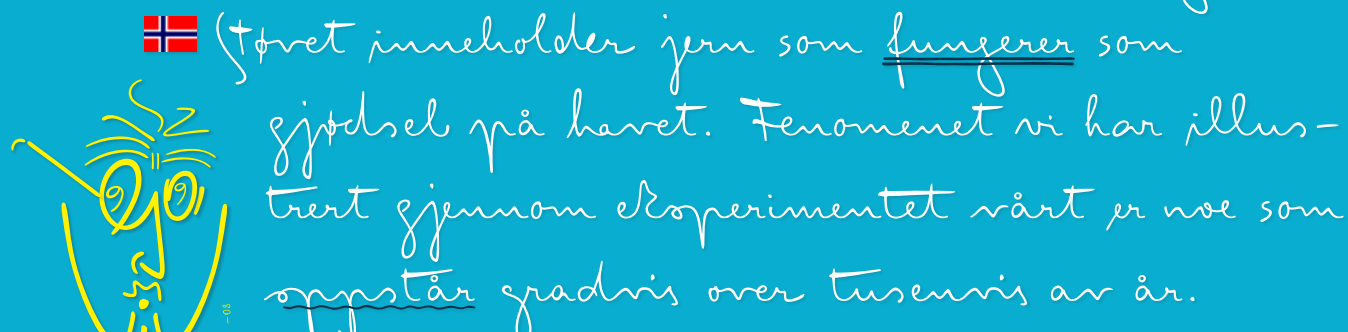 Støvet inneholder jern som fungerer som
gjødsel på havet. Fenomenet vi har illus-
trert gjennom eksperimentet vårt er noe som
oppstår gradvis over tusenvis av år.